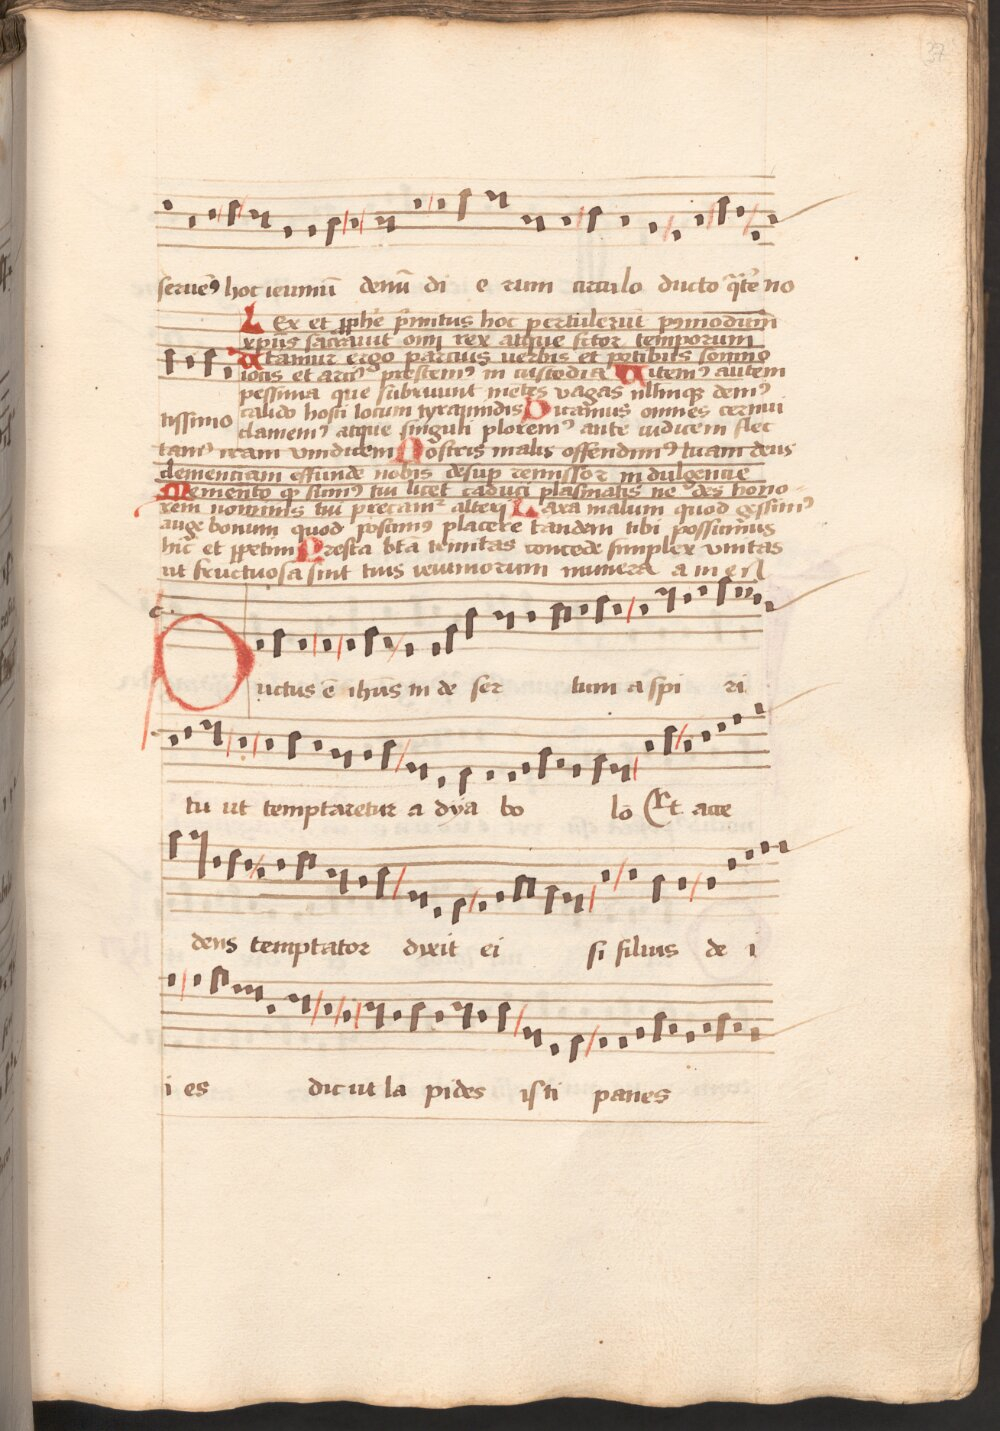 37
seruem9 hoc ieiuniū denū di e rum circulo ducto q̄te no
Lex et ꝓphe p̄mitus hoc pertulerūt pꝰmodum
xpūs sacrauit om̄ rex atque fctor temporum
Utamur ergo parcius uerbis et potibus somno
iocis et arcꝰ prestemꝰ in custodia Uitemꝰ autem
pessima que subruunt mētes vagas nllmqꝫ demꝰ
tissimo
calido hosti locum tyrannidis Dicamus omnes cernui
clamemꝰ atque singuli ploremꝰ ante iudicem flec
tamꝰ iram vindicem Nostris malis offendimꝰ tuam deus
clementiam effunde nobis desup remissor indulgencie
Memento qꝫ sumꝰ tui licet caduci plasmatis ne des hono-
rem nominis tui precamr alteri Laxa malum quod gessimꝰ
auge bonum quod poscimꝰ placere tandem tibi possimus
hic et ꝑpetim Presta btā trinitas concede simplex vnitas
ut fructuosa sint tuis ieiuniorum munera amen
Ductus ē ihus in de ser tum a spi ri
tu ut temptaretur a dya bo lo Et acce
dens temptator dixit ei si filius de i
i es dic ut la pides isti panes